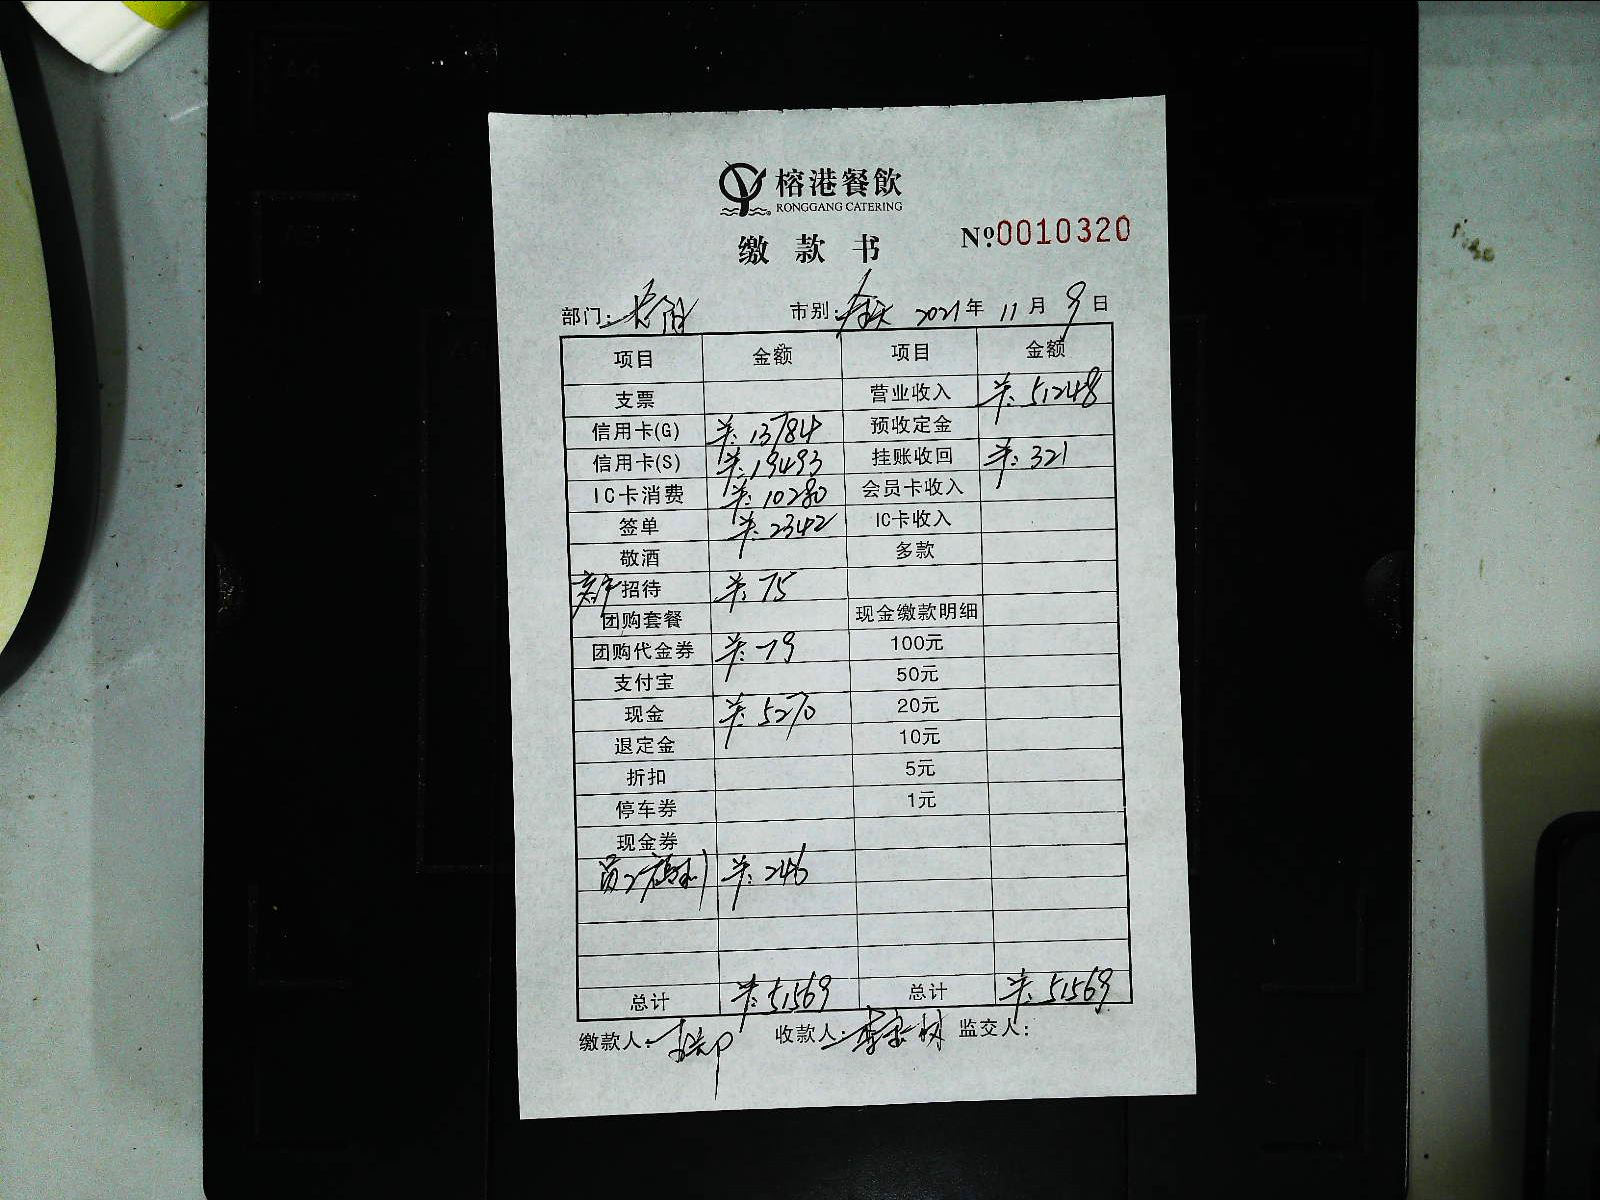 榕港餐飲
RONGGANG CATERING
缴款书 No.0010320
部门: 市别: 全天 2021年 11月 9日
项目 金额 项目 金额
支票 营业收入 ¥:51248
信用卡(G) ¥:13784 预收定金
信用卡(S) ¥:19493 挂账收回 ¥:321
IC卡消费 ¥:10280 会员卡收入
签单 ¥:2342 IC卡收入
敬酒 多款
招待 ¥:75
团购套餐 现金缴款明细
团购代金券 ¥:79 100元
支付宝 50元
现金 ¥:5270 20元
退定金 10元
折扣 5元
停车券 1元
现金券
员工福利 ¥:246
总计 ¥:51569 总计 ¥:51569
缴款人: 收款人: 监交人: